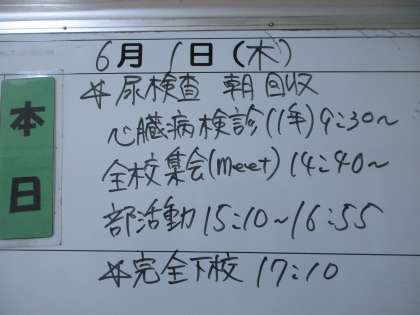 6月1日(木)
本日
☆尿検査 朝回収
心臓病検診(1年)9:30~
全校集会(meet)14:40~
部活動15:10~16:55
☆完全下校 17:10